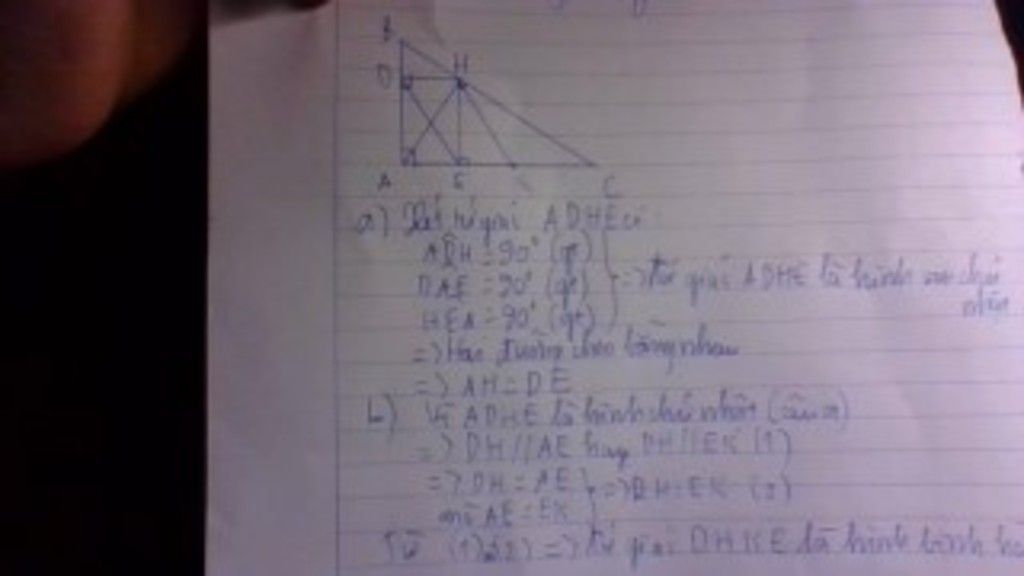 B
D H
A E C
a) Xét tứ giác ADHE có:
ADH = 90° (gt)
DAE = 90° (gt)
HEA = 90° (gt)
=> tứ giác ADHE là hình chữ
nhật
=> Hai đường chéo bằng nhau
=> AH = DE
b) Vì ADHE là hình chữ nhật (câu a)
=> DH // AE hay DH // EK (1)
=> DH = AE => DH = EK (2)
mà AE = EK
Từ (1) (2) => tứ giác DHKE là hình bình